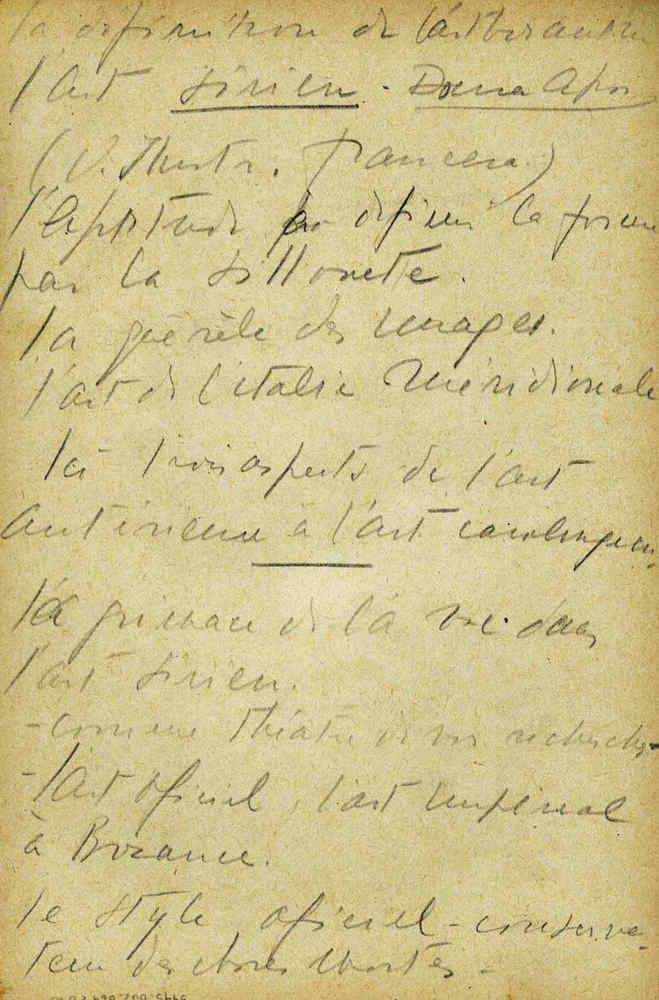 la definition de l'art bizantin
l'art sirien. Doura
(V. francesa)
l'aptitude à definir la forme
par la sillouete.
la querele des images.
l'art de l'italie méridionale
les trois aspects de l'art
anterieur à l'art carolingien.
la primace de la vie dans
l'art sirien.
- comme théatre de vos recherches
- l'art oficiel, l'art imperial
à Bizance.
le style oficiel - conserva-
teur des choses mortes -